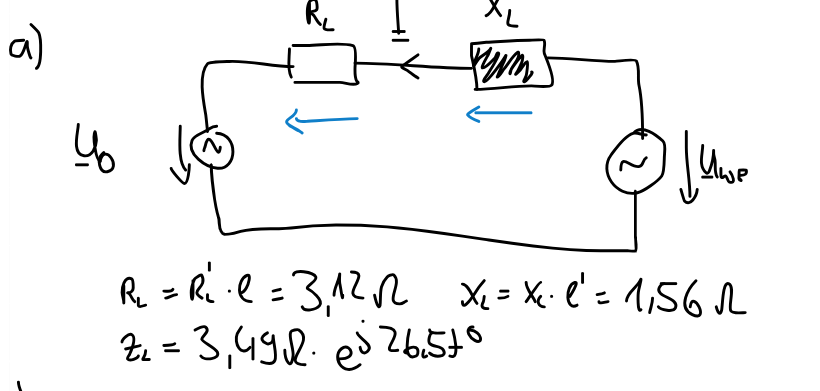 a)
R_L I X_L
U_0 U_WP
R_L = R_L' · l = 3,12 Ω X_L = X_L · l' = 1,56 Ω
Z_L = 3,49 Ω · e^j26,57°